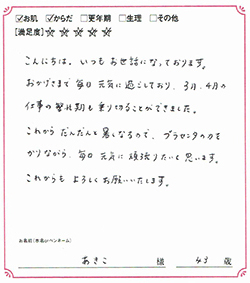 ☑お肌 ☑からだ □更年期 □生理 □その他
[満足度]☆☆☆☆☆
こんにちは。いつもお世話になっております。
おかげさまで毎日元気に過ごしており、3月、4月の
仕事の繁忙期も乗り切ることができました。
これからだんだんと暑くなるので、プラセンタの力を
かりながら、毎日元気に頑張りたいと思います。
これからもよろしくお願いいたします。
お名前(本名orペンネーム)
あきこ 様 43 歳